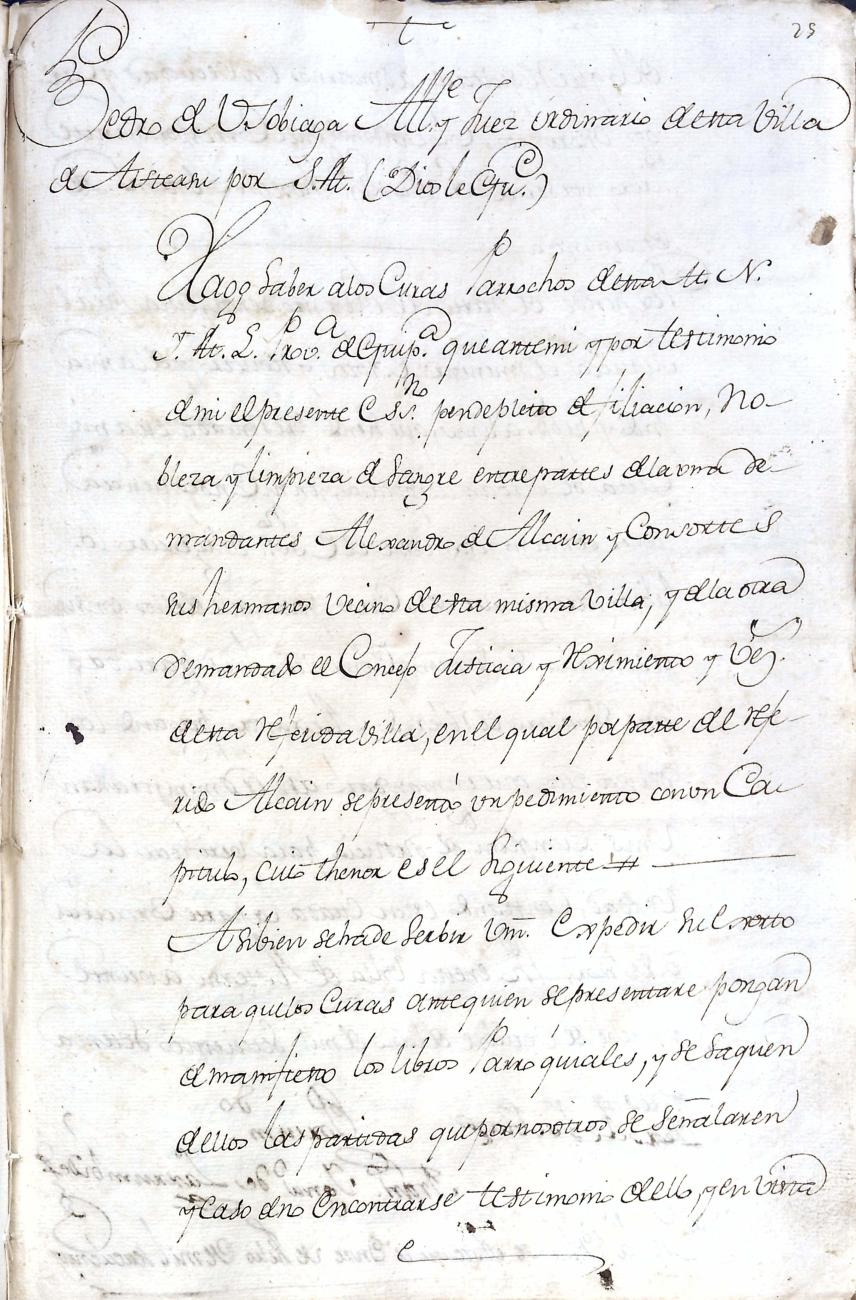 25
Pedro de Vsobiaga Alle. y Juez ordinario de esta Villa
de Asteasu por S. M. (Dios le Gue.)
Hago saber alos Curas Parrochos de esta M. N.
y. M. L. Prova. de Guipa. que antemi y por testimonio
de mi el presente Essno. pende pleito de filiacion, No-
bleza y limpieza de Sangre entrepartes de la vna de-
mandantes Alexandro de Alcain y Consortes
sus hermanos vecinos de esta misma villa, y dela otra
demandado el Concejo Justicia y Reximiento y Vez.
de esta referida Villa, en el qual por parte del refe-
rido Alcain se presentó vn pedimiento con vn Ca-
pitulo, cuio thenor es el Siguiente
Asibien se ha de Serbir Vm. Expedir su Exorto
para que los Curas ante quien se presentare pongan
de manifiesto los libros Parroquiales, y se saquen
de ellos las partidas que por nosotros se señalaren
y Caso de no encontrarse testimonio de ello, y en virtud